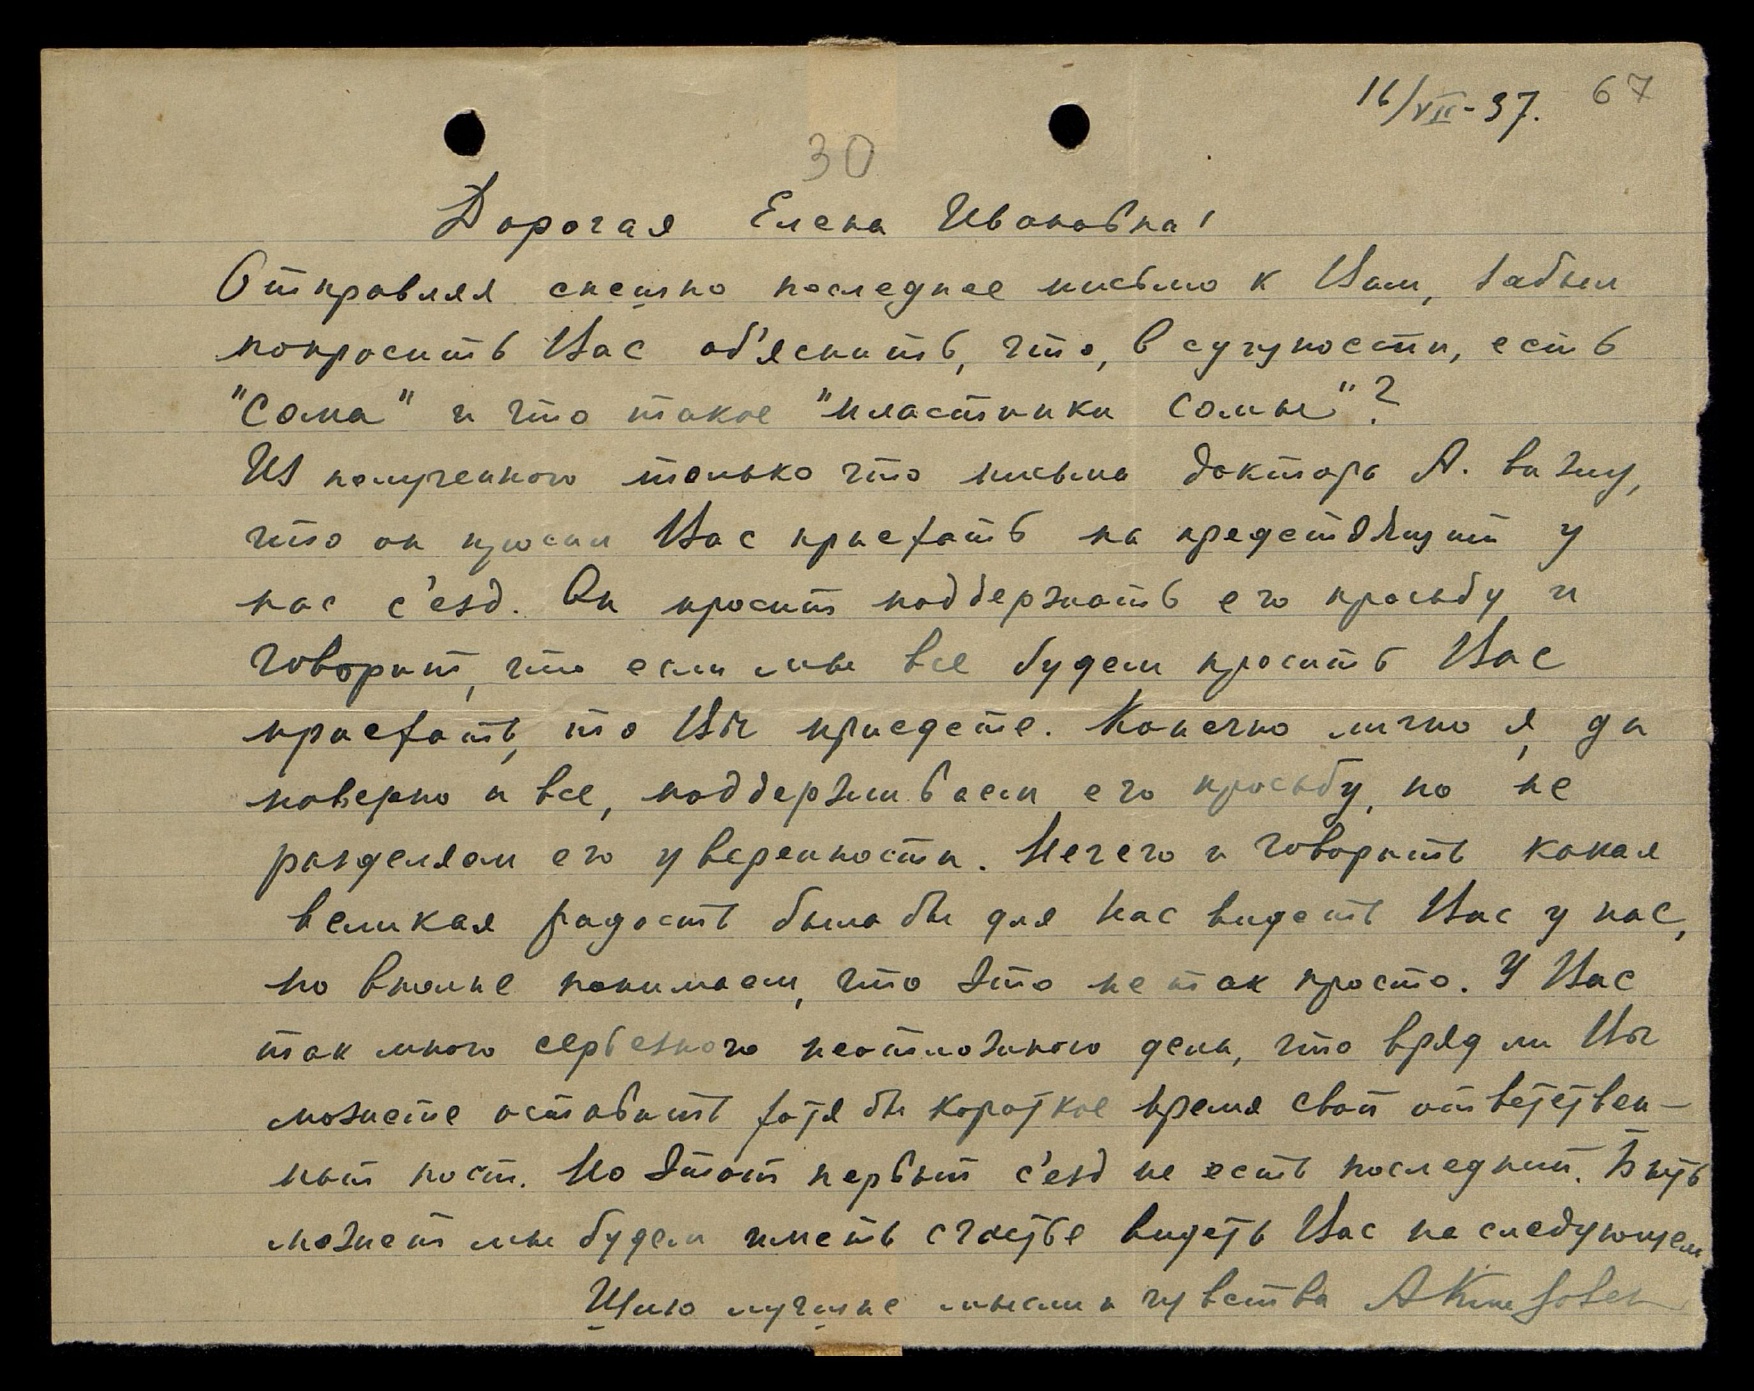 16/VII-37. 67
30
Дорогая Елена Ивановна!
Отправляя спешно последнее письмо к Вам, забыл
попросить Вас об'яснить, что, в сущности, есть
"Сома" и что такое "пластинки Сомы"?
Из полученного только что письма доктора А. вижу,
что он просил Вас приехать на предстоящий у
нас с'езд. Он просит поддержать его просьбу и
говорит, что если мы все будем просить Вас
приехать, то Вы приедете. Конечно лично я, да
наверно и все, поддерживаем его просьбу, но не
разделяем его уверенности. Нечего и говорить какая
великая радость была бы для нас видеть Вас у нас,
но вполне понимаем, что это не так просто. У Вас
так много серьезного неотложного дела, что вряд ли Вы
можете оставить хотя бы короткое время свой ответствен-
ный пост. Но этот первый с'езд не есть последний. Быть
может мы будем иметь счастье видеть Вас на следующем
Шлю лучшие мысли и чувства